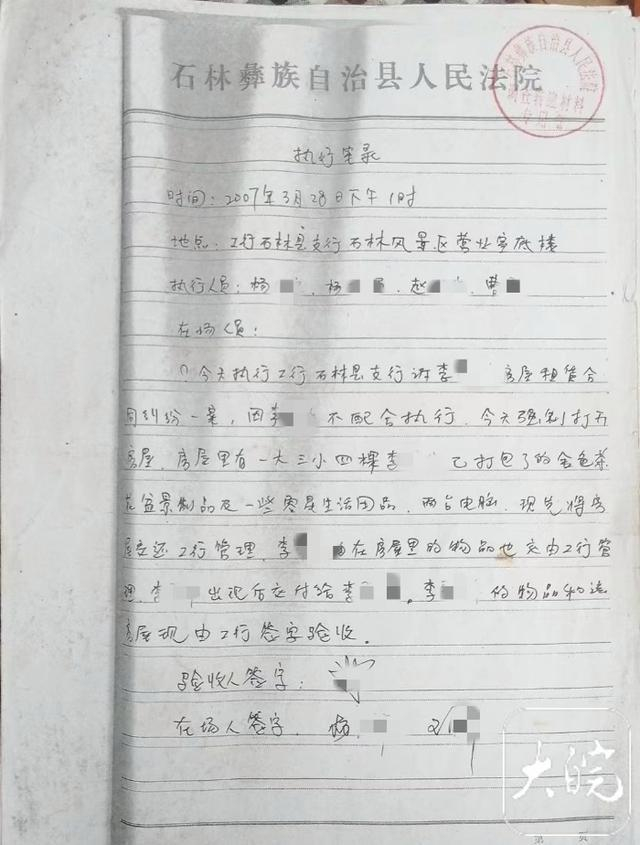 石林彝族自治县人民法院
执行笔录
时间：2007年3月28日下午1时
地点：工行石林县支行石林风景区营业室底楼
执行人员：杨 、杨 、赵 、曹
在场人员：
今天执行工行石林县支行诉李 房屋租赁合
同纠纷一案，因李 不配合执行，今天强制打开
房屋，房屋里有一大三小四棵李 已打包了的金色茶
花盆景制品及一些零星生活用品，两台电脑，现先将房
屋交还工行管理，李 在房屋里的物品也交由工行管
理，李 出现后交付给李 。李 的物品和该
房屋现由工行签字验收。
验收人签字：
在场人签字：杨
大皖
第 页